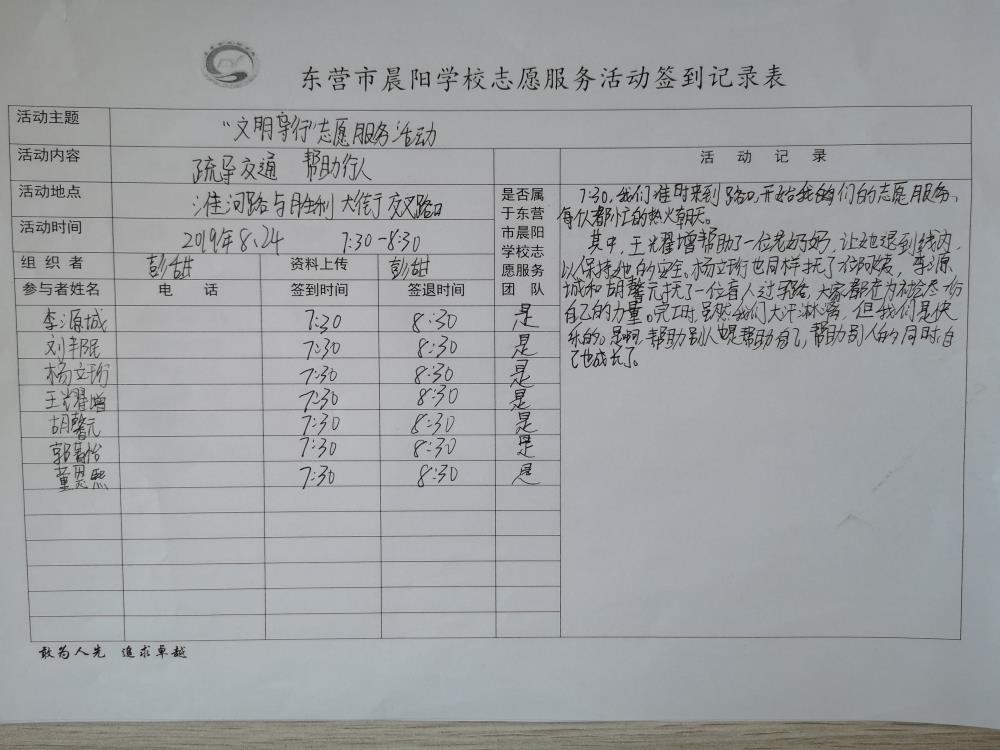 东营市晨阳学校志愿服务活动签到记录表
活动主题 "文明导行"志愿服务活动
活动内容 疏导交通 帮助行人
活动地点 淮河路与胜利大街交叉路口
活动时间 2019年8.24 7:30-8:30
组织者 彭甜 资料上传 彭甜
参与者姓名 电话 签到时间 签退时间
是否属于东营市晨阳学校志愿服务团队
李源城 7:30 8:30 是
刘丰睨 7:30 8:30 是
杨立珩 7:30 8:30 是
王耀增 7:30 8:30 是
胡馨元 7:30 8:30 是
郭怡 7:30 8:30 是
董熙 7:30 8:30 是
活动记录
7:30,我们准时来到路口,开始我们的志愿服务,
每个人都忙的热火朝天。
其中,王耀增帮助了一位老奶奶,让她退到线内,
以保持她的安全。杨立珩也同样扶了位阿姨,李源
城和胡馨元扶了一位盲人过马路,大家都在为社会尽一份
自己的力量。完工时,虽然我们大汗淋漓,但我们是快
乐的。是啊,帮助别人也是帮助自己,帮助别人的同时,自
己也成长了。
敢为人先 追求卓越